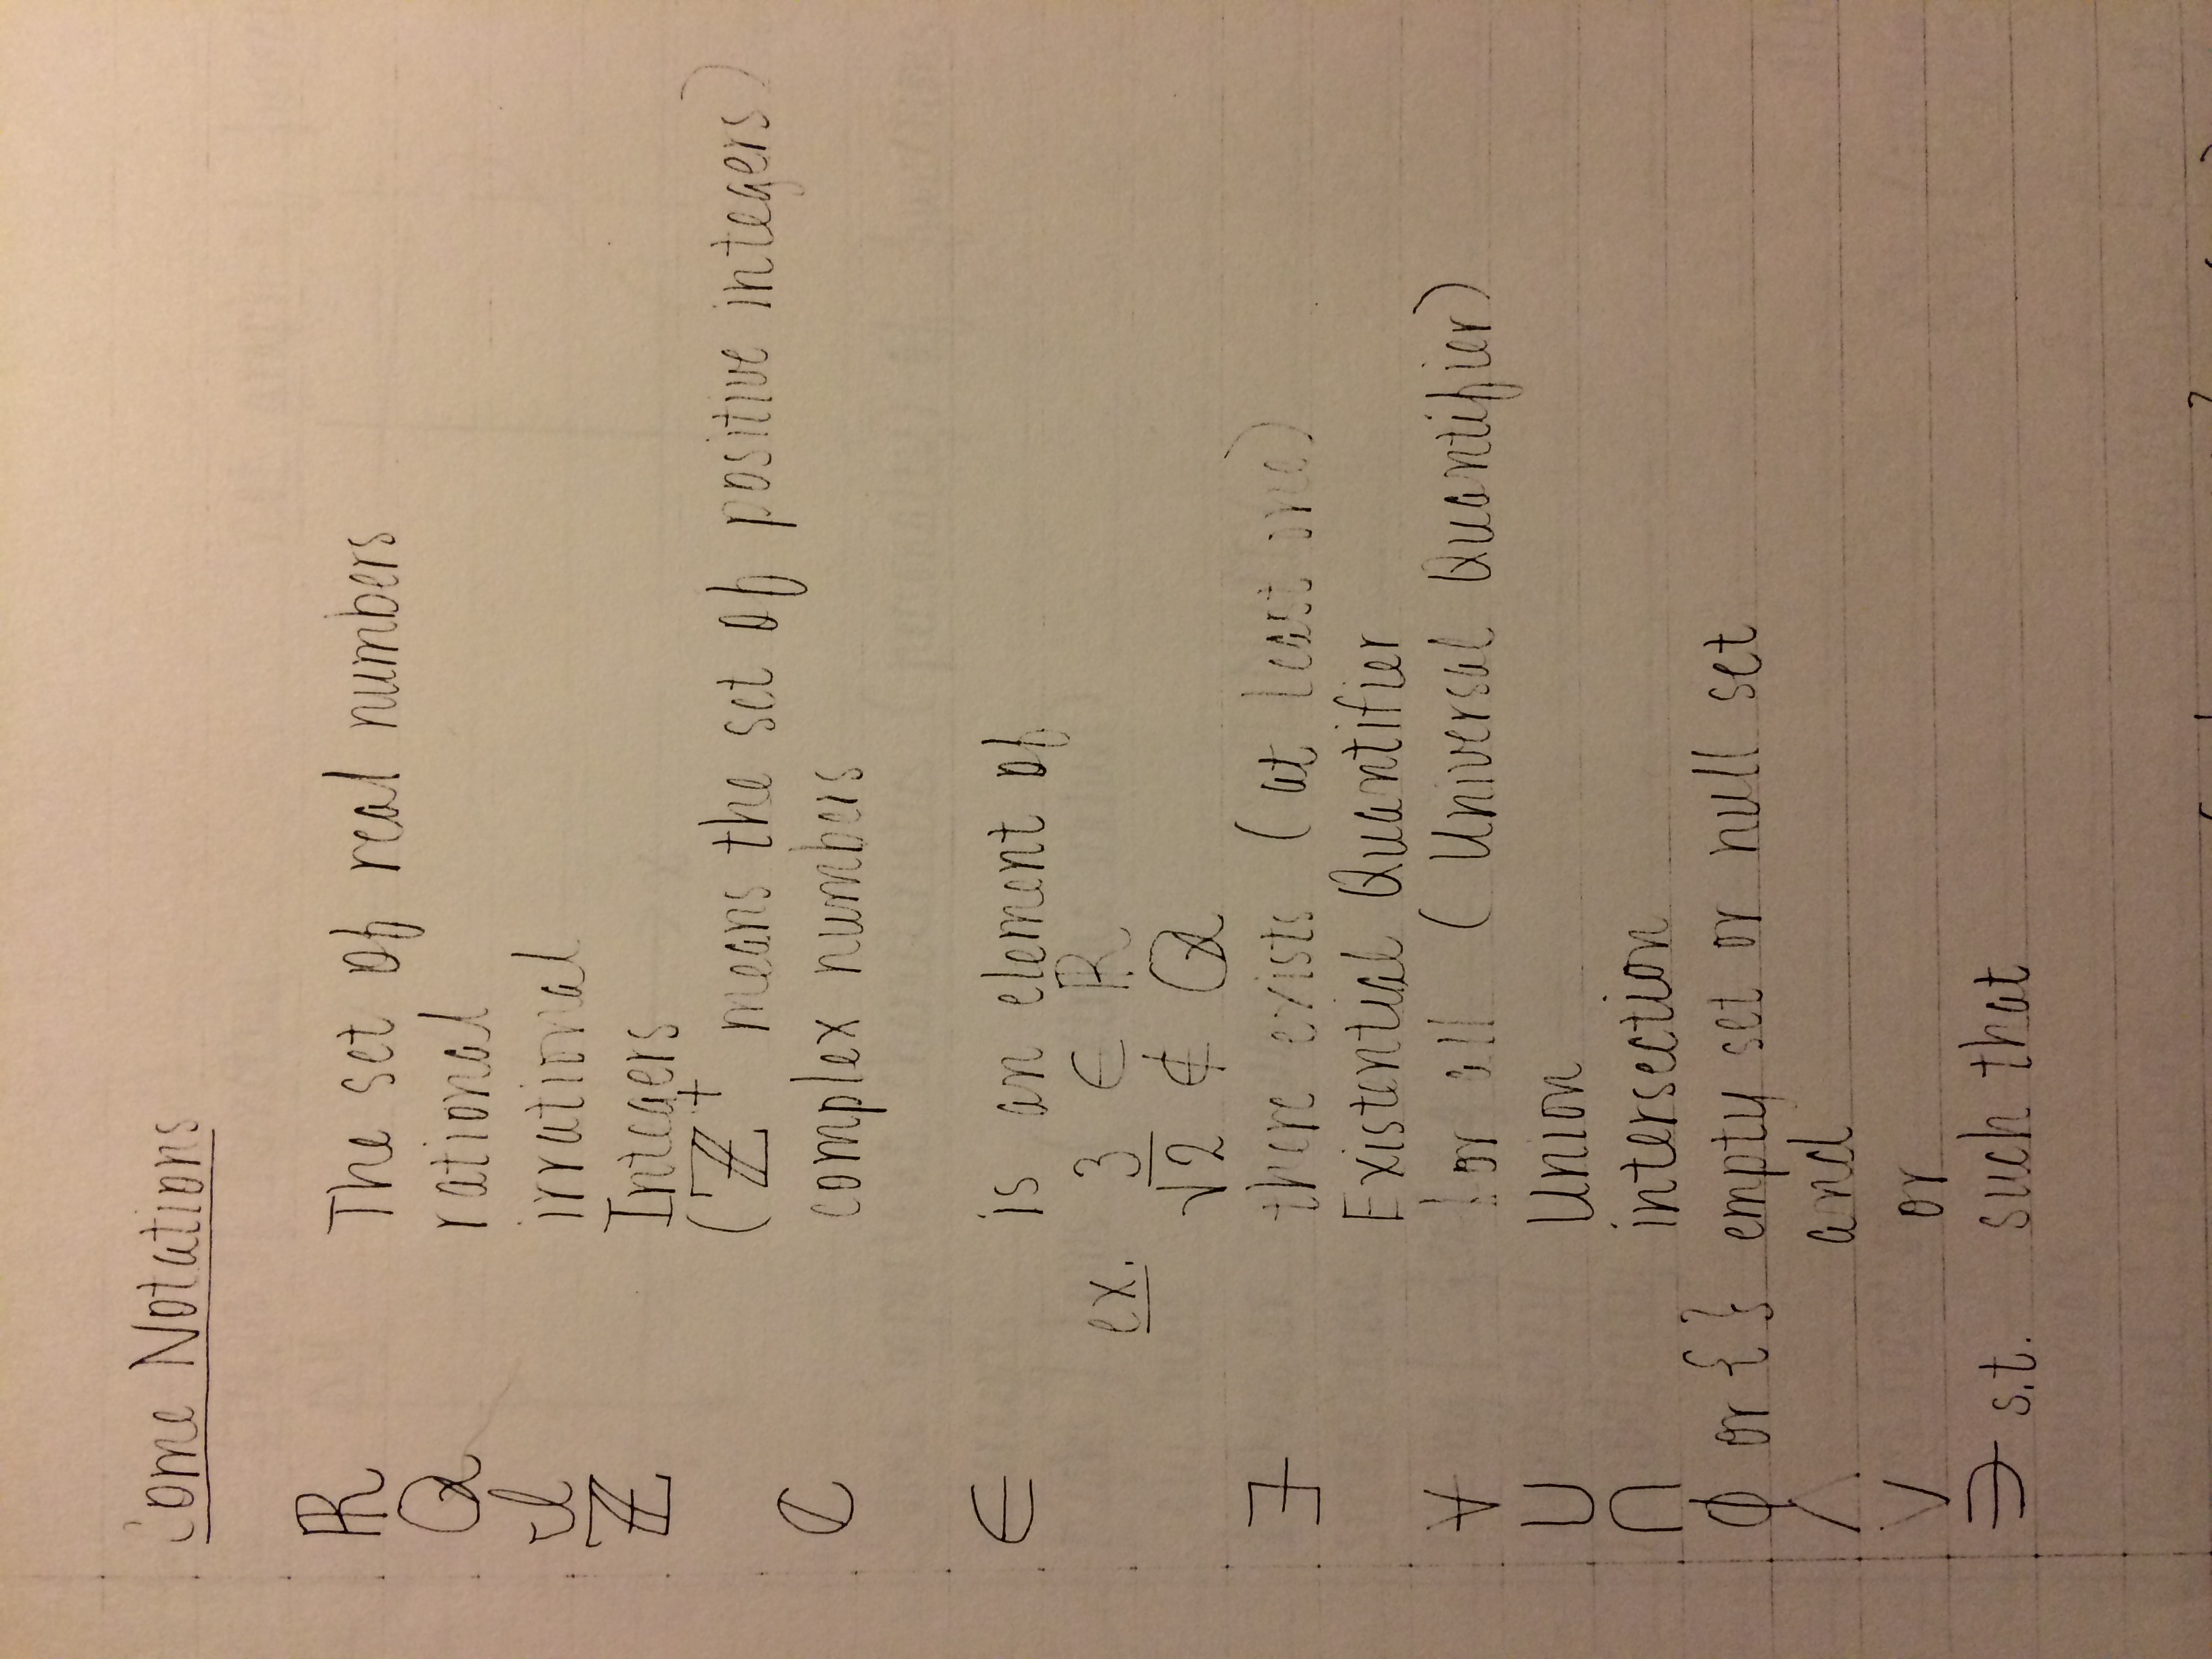 Some Notations
ℝ The set of real numbers
ℚ rational
𝕀 irrational
ℤ Integers
(ℤ⁺ means the set of positive integers)
ℂ complex numbers
∈ is an element of
ex. 3 ∈ ℝ
√2 ∉ ℚ
∃ there exists (at least one)
Existential Quantifier
∀ for all (Universal Quantifier)
∪ Union
∩ intersection
ϕ or { } empty set or null set
∧ and
∨ or
∋ s.t. such that